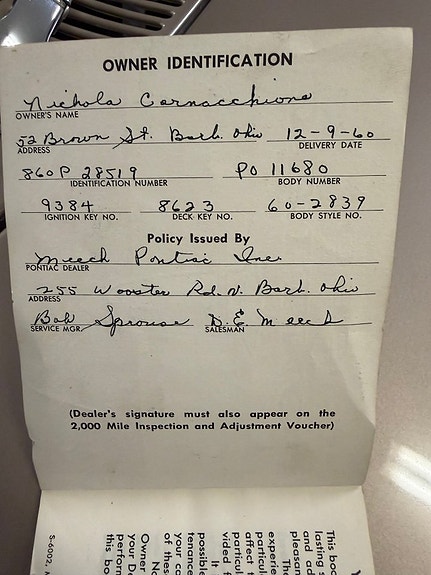 OWNER IDENTIFICATION
Nichola Cornacchione
OWNER'S NAME
52 Brown St. Barb. Ohio 12-9-60
ADDRESS DELIVERY DATE
860P 28519 PO 11680
IDENTIFICATION NUMBER BODY NUMBER
9384 8623 60-2839
IGNITION KEY NO. DECK KEY NO. BODY STYLE NO.
Policy Issued By
Meech Pontiac Inc.
PONTIAC DEALER
255 Wooster Rd. N. Barb. Ohio
ADDRESS
Bob Sprouse D. E. Meech
SERVICE MGR. SALESMAN
(Dealer's signature must also appear on the
2,000 Mile Inspection and Adjustment Voucher)
This boo
lasting s
and dep
pleasan
Th
experie
particu
affect t
particul
vided f
It
possible
tenance
your ca
of these
No
Owner
your De
perform
this bo
S-6002,